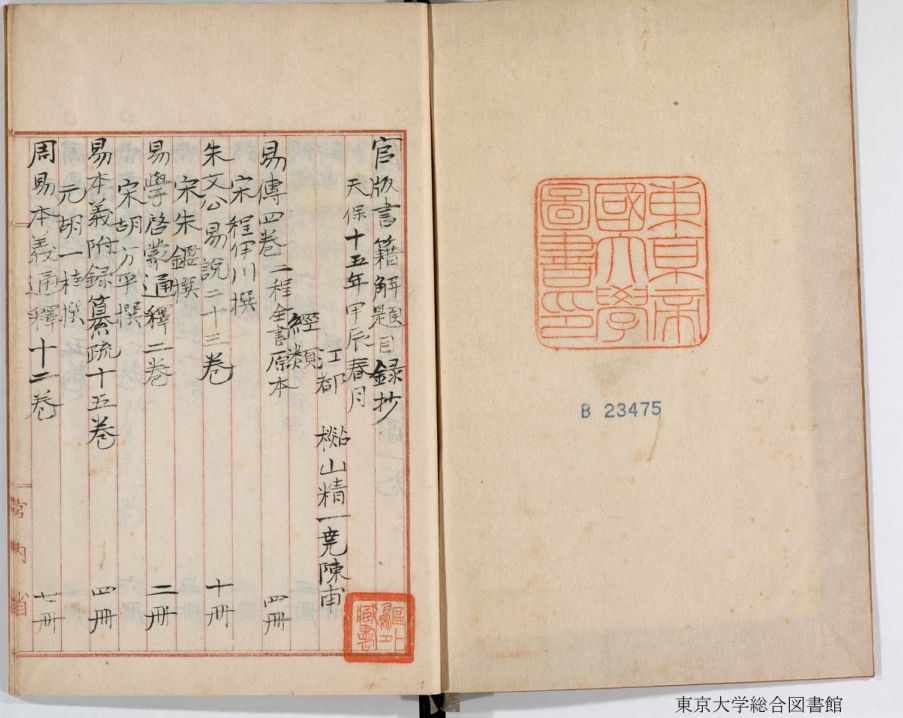 東京帝
國大學
圖書印
B 23475
官版書籍解題目録抄
天保十五年甲辰春月
江都 檆山精一尭陳甫
經類
易傳四巻 二程全書原本 四冊
宋程伊川撰
朱文公易說二十三巻 十冊
宋朱鑑撰
易學啓蒙通釋二巻 二冊
宋胡方平撰
易本義附録纂疏十五巻 四冊
元胡一桂撰
周易本義通釋十二巻 七冊
宮内省
鷗外
藏書
東京大学総合図書館